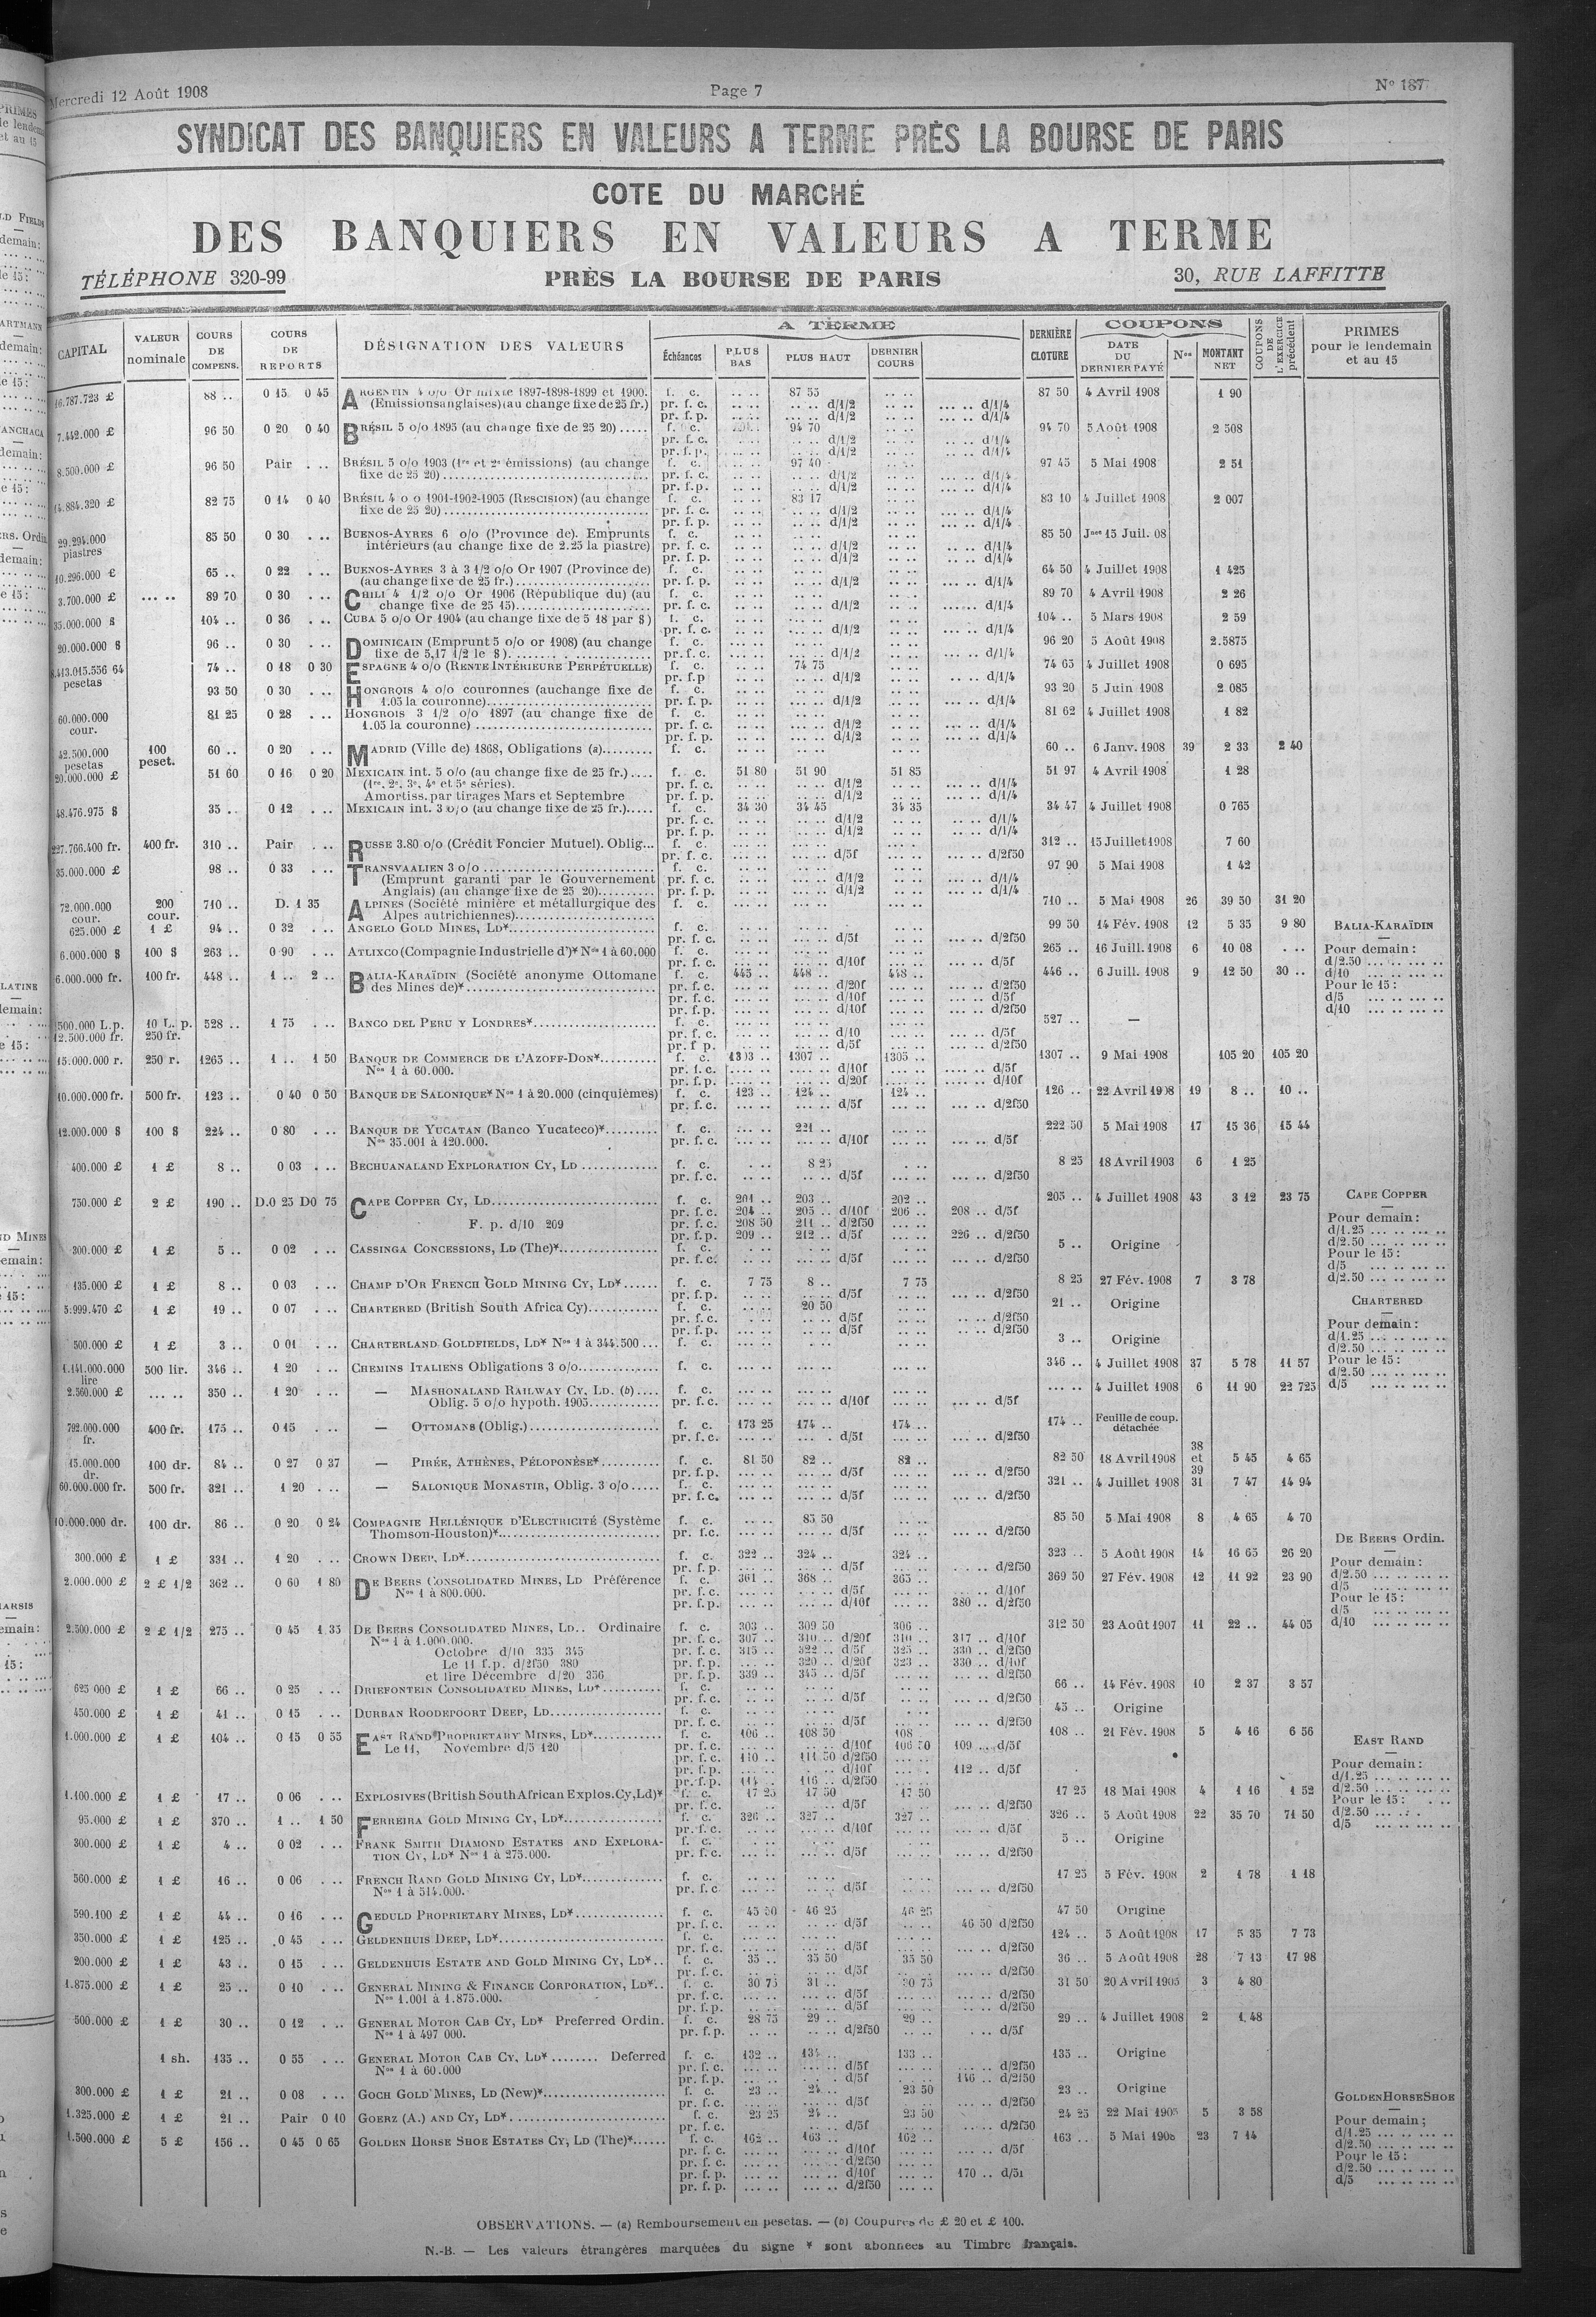 Mercredi 12 Août 1908 Page 7 N° 187
SYNDICAT DES BANQUIERS EN VALEURS A TERME PRÈS LA BOURSE DE PARIS
COTE DU MARCHÉ
DES BANQUIERS EN VALEURS A TERME
TÉLÉPHONE 320-99 PRÈS LA BOURSE DE PARIS 30, RUE LAFFITTE
CAPITAL VALEUR nominale COURS DE COMPENS. COURS DE REPORTS DÉSIGNATION DES VALEURS A TERME Échéances PLUS BAS PLUS HAUT DERNIER COURS DERNIÈRE CLOTURE COUPONS DATE DU DERNIER PAYÉ Nos MONTANT NET COUPONS DE L'EXERCICE précédent PRIMES pour le lendemain et au 15
16.787.723 £ 88 .. 0 15 0 45 ARGENTIN 4 o/o Or mixte 1897-1898-1899 et 1900. f. c. 87 55 87 50 4 Avril 1908 1 90
(Emissions anglaises) (au change fixe de 25 fr.) pr. f. c. d/1/2 d/1/4
pr. f. p. d/1/2 d/1/4
7.442.000 £ 96 50 0 20 0 40 BRÉSIL 5 o/o 1895 (au change fixe de 25 20) f. c. 94 70 94 70 5 Août 1908 2 508
pr. f. c. d/1/2 d/1/4
pr. f. p. d/1/2 d/1/4
8.500.000 £ 96 50 Pair BRÉSIL 5 o/o 1903 (1res et 2e émissions) (au change f. c. 97 40 97 45 5 Mai 1908 2 51
fixe de 25 20) pr. f. c. d/1/2 d/1/4
pr. f.p. d/1/2 d/1/4
14.884.320 £ 82 75 0 14 0 40 BRÉSIL 4 o o 1901-1902-1905 (RESCISION) (au change f. c. 83 17 83 10 4 Juillet 1908 2 007
fixe de 25 20) pr. f. c. d/1/2 d/1/4
pr. f. p. d/1/2 d/1/4
29.294.000 piastres 85 50 0 30 BUENOS-AYRES 6 o/o (Province de). Emprunts f. c. 85 50 Jce 15 Juil. 08
intérieurs (au change fixe de 2.25 la piastre) pr. f. c. d/1/2 d/1/4
pr. f. p. d/1/2 d/1/4
10.296.000 £ 65 .. 0 22 BUENOS-AYRES 3 à 3 1/2 o/o Or 1907 (Province de) f. c. 64 50 4 Juillet 1908 1 425
(au change fixe de 25 fr.) pr. f. p. d/1/2 d/1/4
3.700.000 £ 89 70 0 30 CHILI 4 1/2 o/o Or 1906 (République du) (au f. c. 89 70 4 Avril 1908 2 26
change fixe de 25 15) pr. f. c. d/1/2 d/1/4
35.000.000 $ 104 .. 0 36 CUBA 5 o/o Or 1904 (au change fixe de 5 18 par $) f. c. 104 .. 5 Mars 1908 2 59
pr. f. c. d/1/2 d/1/4
20.000.000 $ 96 .. 0 30 DOMINICAIN (Emprunt 5 o/o or 1908) (au change f. c. 96 20 5 Août 1908 2.5875
fixe de 5,17 1/2 le $) pr. f. c. d/1/2 d/1/4
413.015.556 64 pesetas 74 .. 0 18 0 30 ESPAGNE 4 o/o (RENTE INTÉRIEURE PERPÉTUELLE) f. c. 74 75 74 65 4 Juillet 1908 0 695
pr. f.p d/1/2 d/1/4
93 50 0 30 HONGROIS 4 o/o couronnes (au change fixe de f. c. 93 20 5 Juin 1908 2 085
1.05 la couronne) pr. f. p. d/1/2 d/1/4
60.000.000 cour. 81 25 0 28 HONGROIS 3 1/2 o/o 1897 (au change fixe de f. c. 81 62 4 Juillet 1908 1 82
1.05 la couronne) pr. f. c. d/1/2 d/1/4
pr. f. p. d/1/2 d/1/4
42.500.000 pesetas 100 peset. 60 .. 0 20 MADRID (Ville de) 1868, Obligations (a) f. c. 60 .. 6 Janv. 1908 39 2 33 2 40
20.000.000 £ 51 60 0 16 0 20 MEXICAIN int. 5 o/o (au change fixe de 25 fr.) f. c. 51 80 51 90 51 85 51 97 4 Avril 1908 1 28
(1re, 2e, 3e, 4e et 5e séries). pr. f. c. d/1/2 d/1/4
Amortiss. par tirages Mars et Septembre pr. f. p. d/1/2 d/1/4
48.476.975 $ 35 .. 0 12 MEXICAIN int. 3 o/o (au change fixe de 25 fr.) f. c. 34 30 34 45 34 35 34 47 4 Juillet 1908 0 765
pr. f. c. d/1/2 d/1/4
pr. f. p. d/1/2 d/1/4
227.766.400 fr. 400 fr. 310 .. Pair RUSSE 3.80 o/o (Crédit Foncier Mutuel). Oblig. f. c. 312 .. 15 Juillet 1908 7 60
pr. f. c. d/5f d/2f50
35.000.000 £ 98 .. 0 33 TRANSVAALIEN 3 o/o f. c. 97 90 5 Mai 1908 1 42
(Emprunt garanti par le Gouvernement pr. f. c. d/1/2 d/1/4
Anglais) (au change fixe de 25 20) pr. f. p. d/1/2 d/1/4
72.000.000 cour. 200 cour. 710 .. D. 1 35 ALPINES (Société minière et métallurgique des f. c. 710 .. 5 Mai 1908 26 39 50 31 20
Alpes autrichiennes)
625.000 £ 1 £ 94 .. 0 32 ANGELO GOLD MINES, LD* f. c. 99 50 14 Fév. 1908 12 5 35 9 80 BALIA-KARAÏDIN
pr. f. c. d/5f d/2f50
6.000.000 $ 100 $ 263 .. 0 90 ATLIXCO (Compagnie Industrielle d')* Nos 1 à 60.000 f. c. 265 .. 16 Juill. 1908 6 10 08 Pour demain :
pr. f. c. d/10f d/5f d/2.50
6.000.000 fr. 100 fr. 448 .. 1 .. 2 .. BALIA-KARAÏDIN (Société anonyme Ottomane f. c. 445 .. 448 .. 448 .. 446 .. 6 Juill. 1908 9 12 50 30 .. d/10
des Mines de)* pr. f. c. d/20f d/2f50 Pour le 15 :
pr. f. c. d/10f d/5f d/5
pr. f. p. d/10f d/2f50 d/10
500.000 L.p. 10 L. p. 528 .. 1 75 BANCO DEL PERU Y LONDRES* f. c. 527 .. —
12.500.000 fr. 250 fr. pr. f. c. d/10 d/5f
pr. f p. d/5f d/2f50
15.000.000 r. 250 r. 1265 .. 1 .. 1 50 BANQUE DE COMMERCE DE L'AZOFF-DON* f. c. 1303 .. 1307 .. 1305 .. 1307 .. 9 Mai 1908 105 20 105 20
Nos 1 à 60.000. pr. f. c. d/10f d/5f
pr. f. p. d/20f d/10f
10.000.000 fr. 500 fr. 123 .. 0 40 0 50 BANQUE DE SALONIQUE* Nos 1 à 20.000 (cinquièmes) f. c. 123 .. 124 .. 124 .. 126 .. 22 Avril 1908 19 8 .. 10 ..
pr. f. c. d/5f d/2f50
12.000.000 $ 100 $ 224 .. 0 80 BANQUE DE YUCATAN (Banco Yucateco)* f. c. 221 .. 222 50 5 Mai 1908 17 15 36 15 44
Nos 35.001 à 120.000. pr. f. c. d/10f d/5f
400.000 £ 1 £ 8 .. 0 03 BECHUANALAND EXPLORATION CY, LD f. c. 8 25 8 25 18 Avril 1903 6 1 25
pr. f. c. d/5f d/2f50
750.000 £ 2 £ 190 .. D.0 25 D0 75 CAPE COPPER CY, LD f. c. 201 .. 203 .. 202 .. 205 .. 4 Juillet 1908 43 3 12 23 75 CAPE COPPER
pr. f. c. 204 .. 205 .. d/10f 206 .. 208 .. d/5f Pour demain :
F. p. d/10 209 pr. f. c. 208 50 211 .. d/2f50 d/1.25
pr. f. p. 209 .. 212 .. d/5f 226 .. d/2f50 d/2.50
300.000 £ 1 £ 5 .. 0 02 CASSINGA CONCESSIONS, LD (The)* f. c. 5 .. Origine Pour le 15 :
pr. f. c. d/5f d/2f50 d/5
135.000 £ 1 £ 8 .. 0 03 CHAMP D'OR FRENCH GOLD MINING CY, LD* f. c. 7 75 8 .. 7 75 8 25 27 Fév. 1908 7 3 78 d/2.50
pr. f. p. d/5f d/2f50
5.999.470 £ 1 £ 19 .. 0 07 CHARTERED (British South Africa Cy) f. c. 20 50 21 .. Origine CHARTERED
pr. f. c. d/5f d/2f50 Pour demain :
pr. f. p. d/5f d/2f50 d/1.25
500.000 £ 1 £ 3 .. 0 01 CHARTERLAND GOLDFIELDS, LD* Nos 1 à 344.500 f. c. 3 .. Origine d/2.50
1.141.000.000 lire 500 lir. 346 .. 1 20 CHEMINS ITALIENS Obligations 3 o/o f. c. 346 .. 4 Juillet 1908 37 5 78 11 57 Pour le 15 :
d/2.50
2.560.000 £ 350 .. 1 20 — MASHONALAND RAILWAY CY, LD. (b) f. c. 4 Juillet 1908 6 11 90 22 725 d/5
Oblig. 5 o/o hypoth. 1905 pr. f. c. d/10f d/5f
792.000.000 fr. 400 fr. 175 .. 0 15 — OTTOMANS (Oblig.) f. c. 173 25 174 .. 174 .. 174 .. Feuille de coup. détachée
pr. f. c. d/5f d/2f50
15.000.000 dr. 100 dr. 84 .. 0 27 0 37 — PIRÉE, ATHÈNES, PÉLOPONÈSE* f. c. 81 50 82 .. 82 .. 82 50 18 Avril 1908 38 et 39 5 45 4 65
pr. f. p. d/5f d/2f50
60.000.000 fr. 500 fr. 321 .. 1 20 — SALONIQUE MONASTIR, Oblig. 3 o/o f. c. 321 .. 4 Juillet 1908 31 7 47 14 94
pr. f. c. d/5f d/2f50
10.000.000 dr. 100 dr. 86 .. 0 20 0 24 COMPAGNIE HELLÉNIQUE D'ELECTRICITÉ (Système f. c. 85 50 85 50 5 Mai 1908 8 4 65 4 70
Thomson-Houston)* pr. f.c. d/5f d/2f50 DE BEERS Ordin.
300.000 £ 1 £ 331 .. 1 20 CROWN DEEP, LD* f. c. 322 .. 324 .. 324 .. 323 .. 5 Août 1908 14 16 65 26 20 Pour demain :
pr. f. p. d/5f d/2f50 d/2.50
2.000.000 £ 2 £ 1/2 362 .. 0 60 1 80 DE BEERS CONSOLIDATED MINES, LD Préférence f. c. 361 .. 368 .. 365 .. 369 50 27 Fév. 1908 12 11 92 23 90 d/5
Nos 1 à 800.000. pr. f. c. d/5f d/10f Pour le 15 :
pr. f. p. d/10f 380 .. d/2f50 d/5
2.500.000 £ 2 £ 1/2 275 .. 0 45 1 35 DE BEERS CONSOLIDATED MINES, LD.. Ordinaire f. c. 303 .. 309 50 306 .. 312 50 23 Août 1907 11 22 .. 44 05 d/10
Nos 1 à 1.000.000. pr. f. c. 307 .. 310 .. d/20f 310 .. 317 .. d/10f
Octobre d/10 335 345 pr. f. c. 315 .. 322 .. d/5f 325 .. 330 .. d/2f50
Le 11 f.p. d/2f50 380 pr. f. p. 320 .. d/20f 323 .. 330 .. d/10f
et lire Décembre d/20 356 pr. f. p. 339 .. 345 .. d/5f d/2f50
625 000 £ 1 £ 66 .. 0 25 DRIEFONTEIN CONSOLIDATED MINES, LD* f. c. 66 .. 14 Fév. 1908 10 2 37 3 57
pr. f. c. d/5f d/2f50
450.000 £ 1 £ 41 .. 0 15 DURBAN ROODEPOORT DEEP, LD f. c. 45 .. Origine
pr. f. c. d/5f d/2f50
1.000.000 £ 1 £ 104 .. 0 15 0 55 EAST RAND PROPRIETARY MINES, LD* f. c. 106 .. 108 50 108 .. 108 .. 21 Fév. 1908 5 4 16 6 56 EAST RAND
Le 11, Novembre d/5 120 pr. f. c. d/10f 106 50 109 .. d/5f
pr. f. c. 110 .. 111 50 d/2f50 Pour demain :
pr. f. p. d/10f 112 .. d/5f d/1.25
pr. f. p. 114 .. 116 .. d/2f50 d/2.50
1.100.000 £ 1 £ 17 .. 0 06 EXPLOSIVES (British South African Explos. Cy, Ld)* f. c. 17 25 17 50 17 50 17 25 18 Mai 1908 4 1 16 1 52 Pour le 15 :
pr. f. c. d/5f d/2f50 d/2.50
95.000 £ 1 £ 370 .. 1 .. 1 50 FERREIRA GOLD MINING CY, LD* f. c. 326 .. 327 .. 327 .. 326 .. 5 Août 1908 22 35 70 71 50 d/5
pr. f. c. d/10f d/5f
300.000 £ 1 £ 4 .. 0 02 FRANK SMITH DIAMOND ESTATES AND EXPLORA- f. c. 5 .. Origine
TION CY, LD* Nos 1 à 275.000. pr. f. c. d/5f d/2f50
560.000 £ 1 £ 16 .. 0 06 FRENCH RAND GOLD MINING CY, LD* f. c. 17 25 5 Fév. 1908 2 1 78 1 18
Nos 1 à 514.000. pr. f. c. d/5f d/2f50
590.100 £ 1 £ 44 .. 0 16 GEDULD PROPRIETARY MINES, LD* f. c. 45 50 46 25 46 25 47 50 Origine
pr. f. c. d/5f 46 50 d/2f50
350.000 £ 1 £ 125 .. 0 45 GELDENHUIS DEEP, LD* f. c. 124 .. 5 Août 1908 17 5 35 7 73
pr. f. c. d/5f d/2f50
200.000 £ 1 £ 43 .. 0 15 GELDENHUIS ESTATE AND GOLD MINING CY, LD* f. c. 35 .. 35 50 35 50 36 .. 5 Août 1908 28 7 13 17 98
pr. f. c. d/5f d/2f50
1.875.000 £ 1 £ 25 .. 0 10 GENERAL MINING & FINANCE CORPORATION, LD* f. c. 30 75 31 .. 30 75 31 50 20 Avril 1905 3 4 80
Nos 1.001 à 1.875.000. pr. f. c. d/5f d/2f50
pr. f. p. d/5f d/2f50
500.000 £ 1 £ 30 .. 0 12 GENERAL MOTOR CAB CY, LD* Preferred Ordin. f. c. 28 75 29 .. 29 .. 29 .. 4 Juillet 1908 2 1,48
Nos 1 à 497 000. pr. f. p. d/2f50 d/5f
1 sh. 135 .. 0 55 GENERAL MOTOR CAB CY, LD* Deferred f. c. 132 .. 134 .. 133 .. 135 .. Origine
Nos 1 à 60.000 pr. f. c. d/5f d/2f50
pr. f. p. d/5f 146 .. d/2f50
300.000 £ 1 £ 21 .. 0 08 GOCH GOLD MINES, LD (New)* f. c. 23 .. 24 .. 23 50 23 .. Origine GOLDEN HORSE SHOE
pr. f. c. d/5f d/2f50
1.325.000 £ 1 £ 21 .. Pair 0 10 GOERZ (A.) AND CY, LD* f. c. 23 25 24 .. 23 50 24 25 22 Mai 1905 5 3 58 Pour demain ;
pr. f. c. d/5f d/2f50 d/1.25
1.500.000 £ 5 £ 156 .. 0 45 0 65 GOLDEN HORSE SHOE ESTATES CY, LD (The)* f. c. 162 .. 163 .. 162 .. 163 .. 5 Mai 1908 23 7 14 d/2.50
pr. f. c. d/10f d/5f Pour le 15 :
pr. f. c. d/2f50 d/2.50
pr. f. p. d/10f 170 .. d/5f d/5
pr. f. p. d/2f50
OBSERVATIONS. — (a) Remboursement en pesetas. — (b) Coupures de £ 20 et £ 100.
N.-B. — Les valeurs étrangères marquées du signe * sont abonnées au Timbre français.